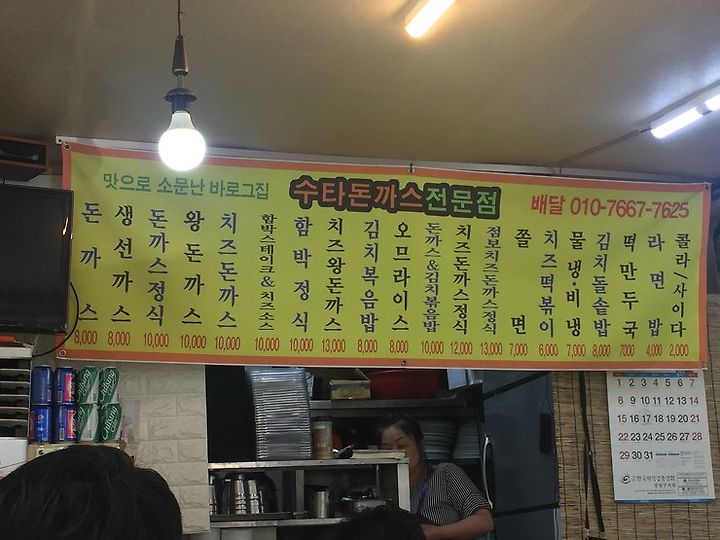 맛으로 소문난 바로그집
수타돈까스전문점
배달 010-7667-7625
돈까스 8,000
생선까스 8,000
돈까스정식 10,000
왕돈까스 10,000
치즈돈까스 10,000
함박스테이크&치즈소스 10,000
함박정식 10,000
치즈왕돈까스 13,000
김치볶음밥 8,000
오므라이스 8,000
돈까스&김치볶음밥 10,000
치즈돈까스정식 12,000
점보치즈돈까스정식 13,000
쫄면 7,000
치즈떡볶이 6,000
물냉·비냉 7,000
김치돌솥밥 8,000
떡만두국 7000
라면밥 4,000
콜라/사이다 2,000
1 2 3 4 5 6 7
8 9 10 11 12 13 14
15 16 17 18 19 20 21
22 23 24 25 26 27 28
29 30 31